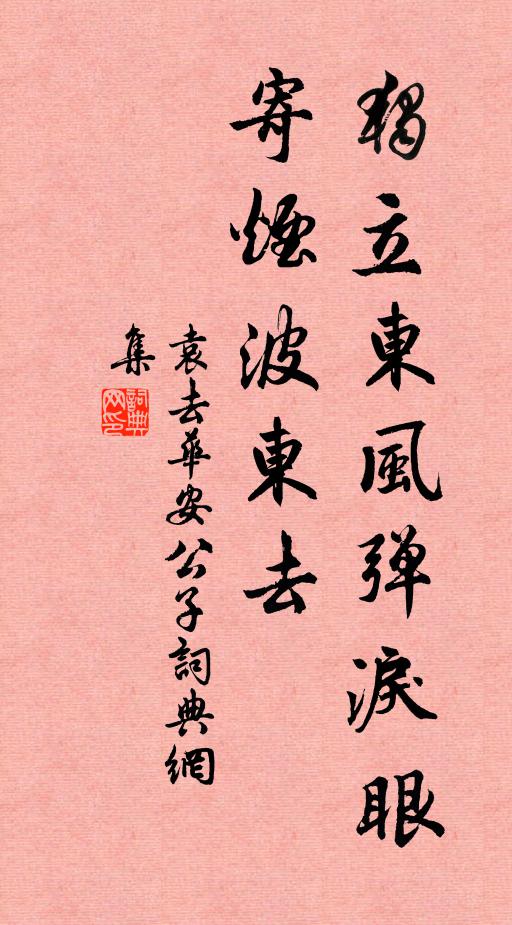 獨立東風彈淚眼
寄煙波東去
袁去華安公子詞典網
集
詞典網印